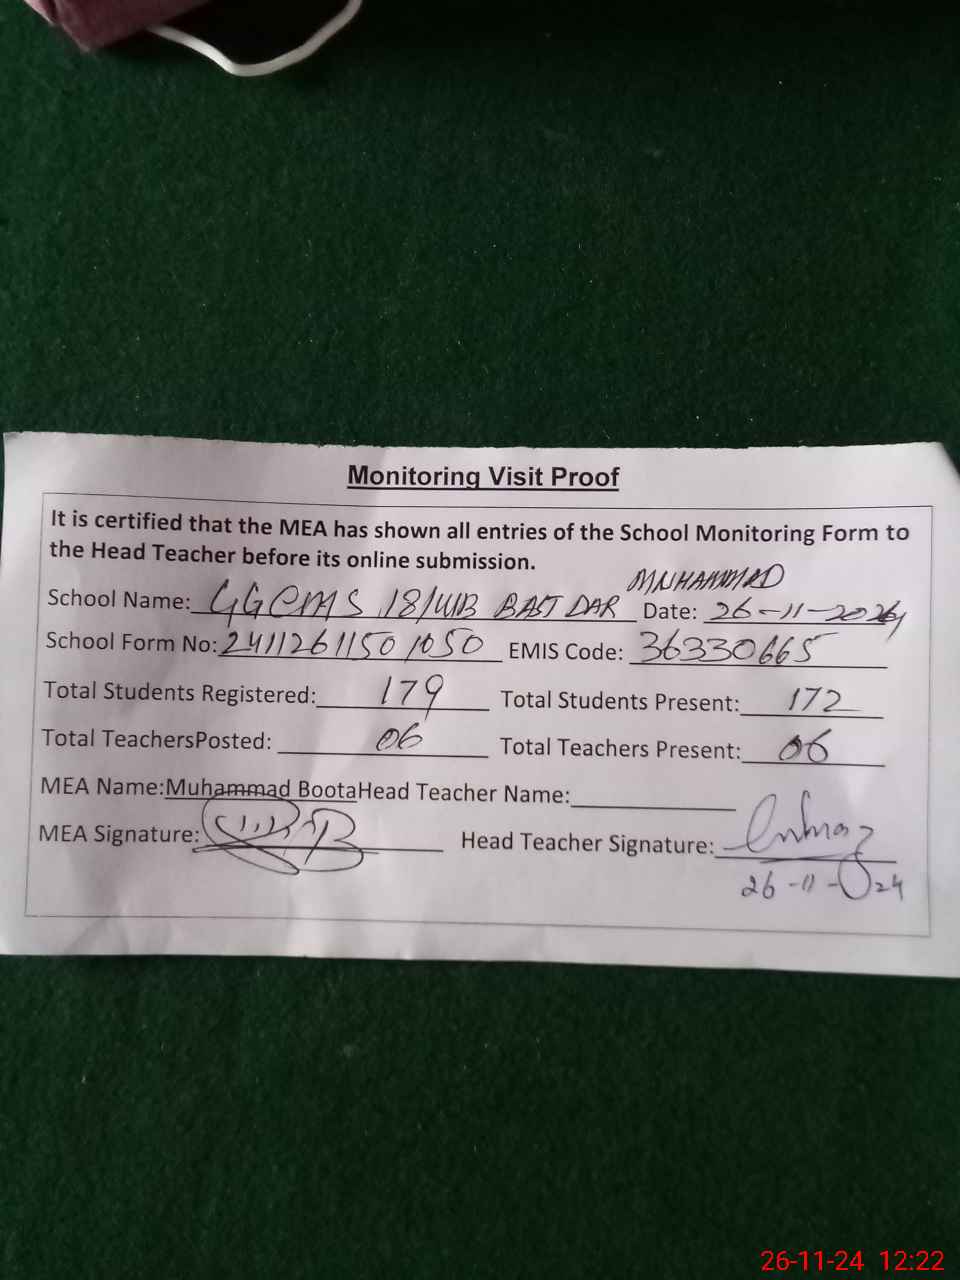 Monitoring Visit Proof
It is certified that the MEA has shown all entries of the School Monitoring Form to
the Head Teacher before its online submission.
MUHAMMAD
School Name: GGCMS 18/WB BAST DAR Date: 26-11-2024
School Form No: 24112611501050 EMIS Code: 36330665
Total Students Registered: 179 Total Students Present: 172
Total TeachersPosted: 06 Total Teachers Present: 06
MEA Name:Muhammad BootaHead Teacher Name:
MEA Signature: Head Teacher Signature:
26-11-24
26-11-24 12:22